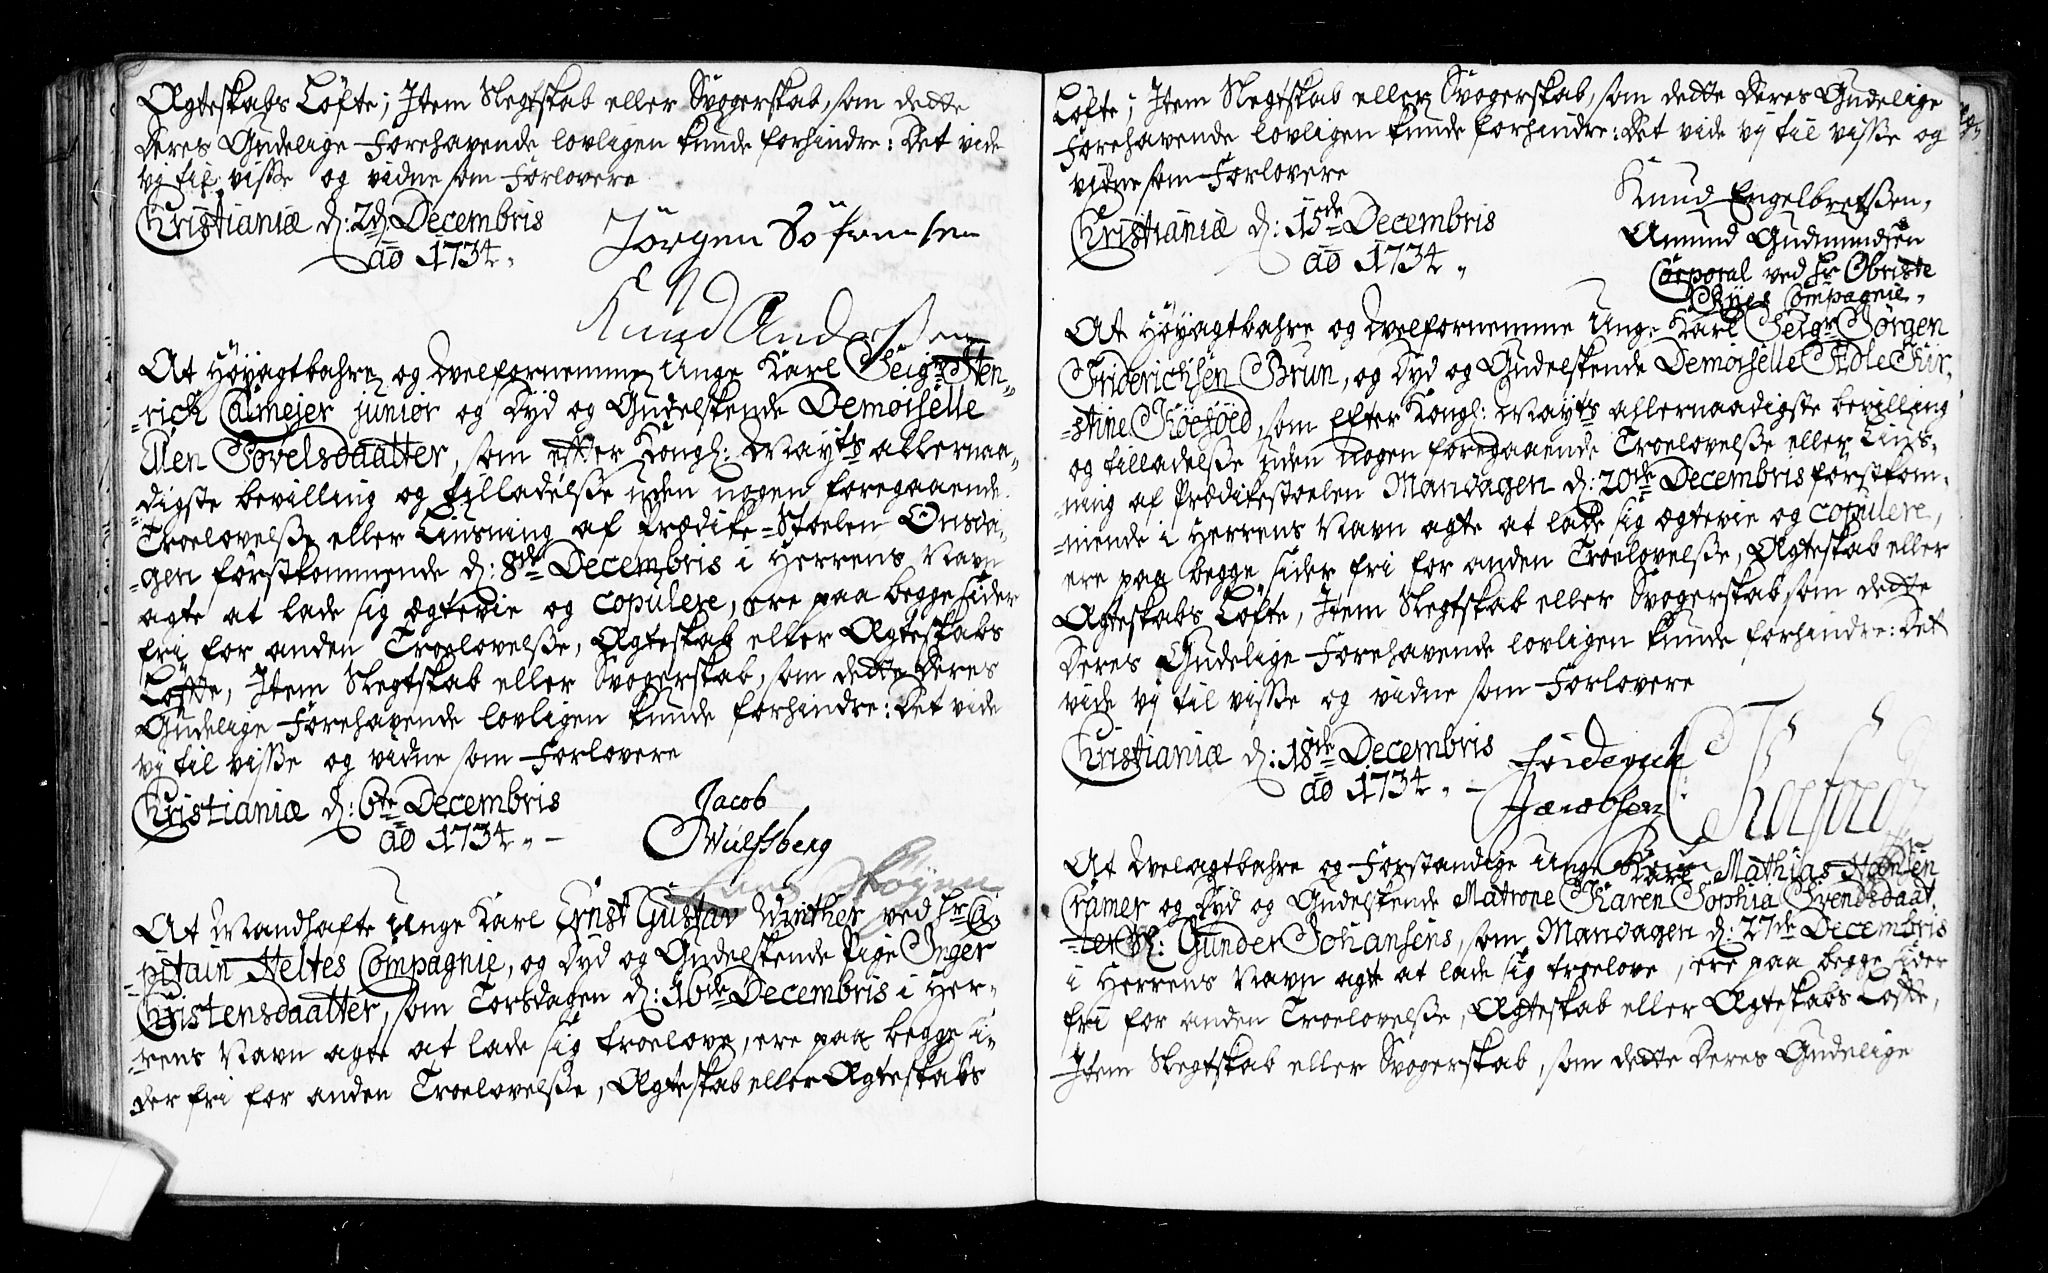 Ægteskabs Løfte; Item Slegtskab eller Svogerskab, som dette
Deres Gudelige Forehavende lovligen kunde forhindre: Det vide
vj til visse og vidne som Forlovere
Christianiæ d: 2d. Decembris
ao 1734.
Jörgen Söfrensen
Knud Anderssen
At Høyagtbahre og Velfornemme Unge Karl Seigr Hen-
-rich Calmejer junior og Dyd og Gudelskende Demoiselle
Elen Tovelsdaatter, som efter Kongl: Mayts allernaa-
-digste bevilling og tilladelsse uden nogen foregaaende
Troelovelsse eller Liusning af Prædike-Stoelen Onsda-
-gen førstkommende d: 8de Decembris i Herrens Navn
agte at lade sig ægtevie og copulere, ere paa begge sider
fri for anden Troelovelsse, Ægteskab eller Ægteskabs
Løfte, Item Slegtskab eller Svogerskab, som dette Deres
Gudelige Forehavende lovligen kunde forhindre: Det vide
vj til visse og vidne som Forlovere
Christianiæ d: 6te Decembris
ao 1734. -
Jacob
Wulfsberg
At Mandhafte Unge Karl Ernst Gustav Winther ved Hr Ca-
-pitain Heltes Compagnie, og Dyd og Gudelskende Pige Inger
Christensdaatter, som Torsdagen d: 16de Decembris i Her-
-rens Navn agte at lade sig troelove, ere paa begge si-
der fri for anden Troelovelsse, Ægteskab eller Ægteskabs
Løfte; Item Slegtskab eller Svogerskab, som dette Deres Gudelige
Forehavende lovligen kunde forhindre: Det vide vj til visse og
vidne som Forlovere
Christianiæ d: 15de Decembris
ao 1734.
Knud Engelbretssen,
Amund Gudmundsen
Corporal ved Hr Obriste
Compagnie.
At Høyagtbahre og Velfornemme Unge Karl Seigr Jørgen
Friderichsen Brun, og Dyd og Gudelskende Demoiselle Adle Kir-
-stine Koefoed, som efter Kongl: Mayts allernaadigste bevilling
og tilladelsse uden nogen foregaaende Troelovelsse eller Lius-
-ning af Prædikestoelen Mandagen d: 20de Decembris førstkom-
-mende i Herrens Navn agte at lade sig ægtevie og copulere,
ere paa begge sider fri for anden Troelovelsse, Ægteskab eller
Ægteskabs Løfte, Item Slegtskab eller Svogerskab som dette
Deres Gudelige Forehavende lovligen kunde forhindre: Det
vide vj til visse og vidne som Forlovere
Christianiæ d: 18de Decembris
ao 1734. -
Friderich
Jacobsen
Koefoed
At Velagtbahre og Forstandige Unge Karl Mathias Hansen
Cramer og Dyd og Gudelskende Matrone Karen Sophia Svendsdaat-
-ter Sl: Gunder Johansens, som Mandagen d: 27de Decembris
i Herrens Navn agte at lade sig troelove, ere paa begge sider
fri for anden Troelovelsse, Ægteskab eller Ægteskabs Løfte,
Item Slegtskab eller Svogerskab, som dette Deres Gudelige